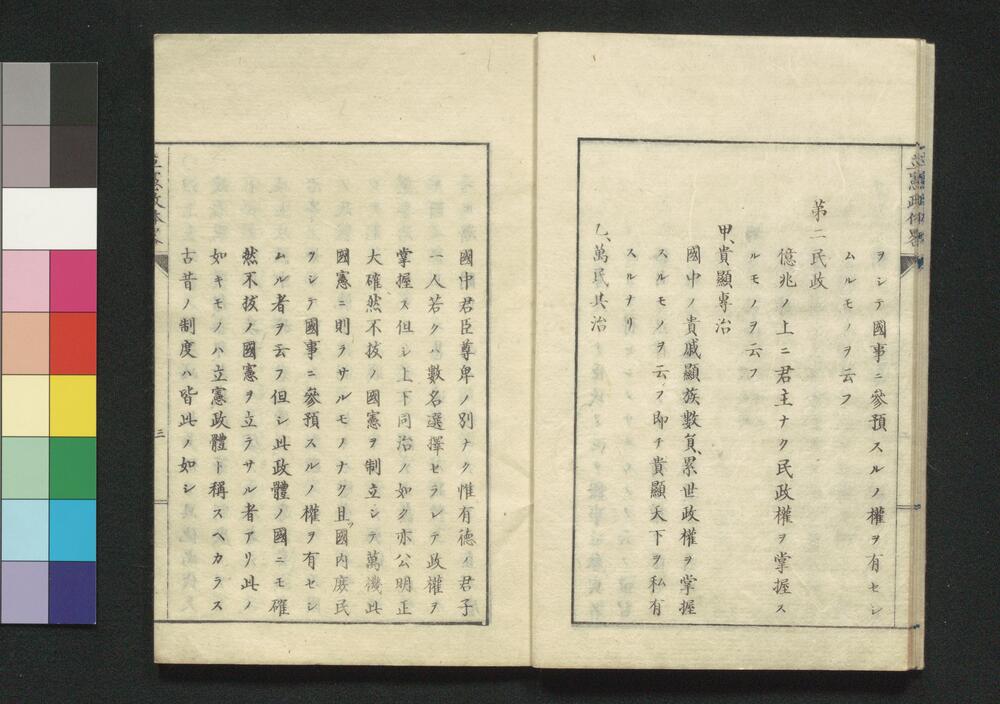 立憲政体畧
ヲシテ國事ニ參預スルノ權ヲ有セシ
ムルモノヲ云フ
第二民政
億兆ノ上ニ君主ナク民政權ヲ掌握ス
ルモノヲ云フ
甲、貴顯專治
國中ノ貴戚顯族數員、累世政權ヲ掌握
スルモノヲ云フ即チ貴顯天下ヲ私有
スルナリ
乙、萬民共治
國中君臣尊卑ノ別ナク惟有德ノ君子
一人若クハ數名選擇セラレテ政權ヲ
掌握ス但シ上下同治ノ如ク亦公明正
大確然不拔ノ國憲ヲ制立シテ萬機此
國憲ニ則ラサルモノナク且ツ國內庶民
ヲシテ國事ニ參預スルノ權ヲ有セシ
ムル者ヲ云フ但シ此政體ノ國ニモ確
然不拔ノ國憲ヲ立テサル者アリ此ノ
如キモノハ立憲政體ト稱スヘカラス
古昔ノ制度ハ皆此ノ如シ
三